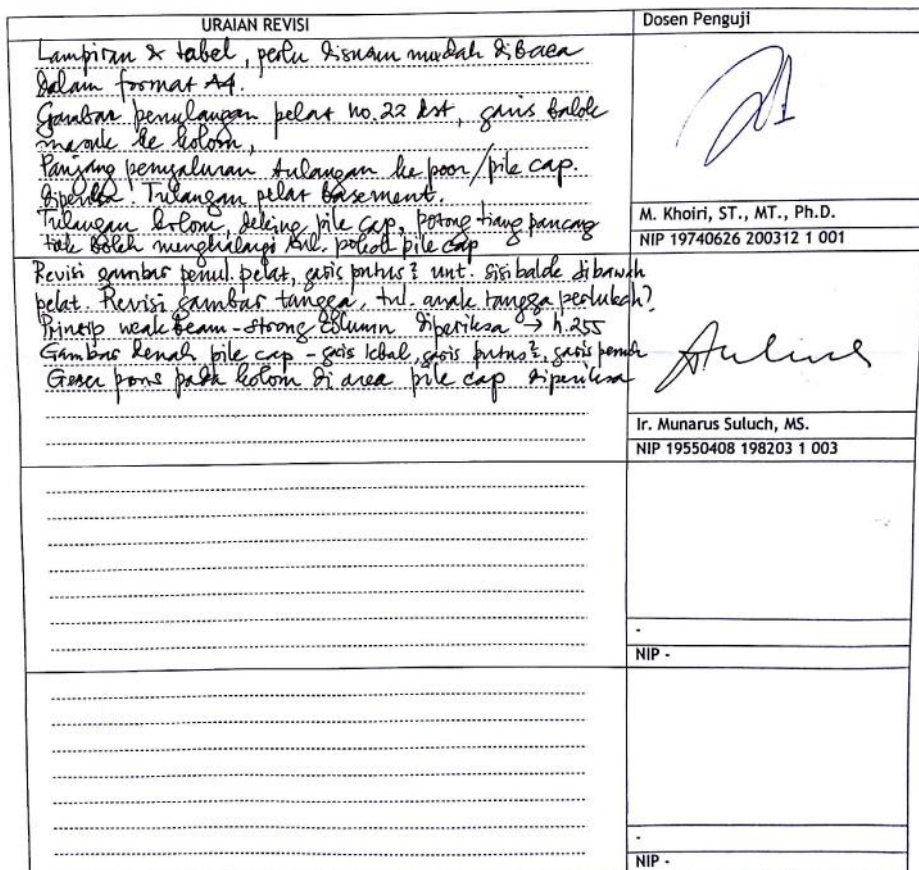 URAIAN REVISI
Dosen Penguji
Lampiran & tabel, perlu disusun mudah dibaca
dalam format A4.
Gambar penulangan pelat no.22 dst, garis balok
masuk ke kolom,
Panjang penyaluran tulangan ke poor/pile cap.
diperiksa. Tulangan pelat basement.
Tulangan kolom, deking pile cap, potong tiang pancang
tdk boleh menghalangi tul. pokok pile cap
M. Khoiri, ST., MT., Ph.D.
NIP 19740626 200312 1 001
Revisi gambar penul. pelat, garis putus² unt. sisi balok dibawah
pelat. Revisi gambar tangga, tul. anak tangga perlukah?
Prinsip weak beam-strong column diperiksa → h.255
Gambar denah pile cap - garis tebal, garis putus², garis penuh
Geser pons pada kolom di area pile cap diperiksa
Ir. Munarus Suluch, MS.
NIP 19550408 198203 1 003
-
NIP -
-
NIP -